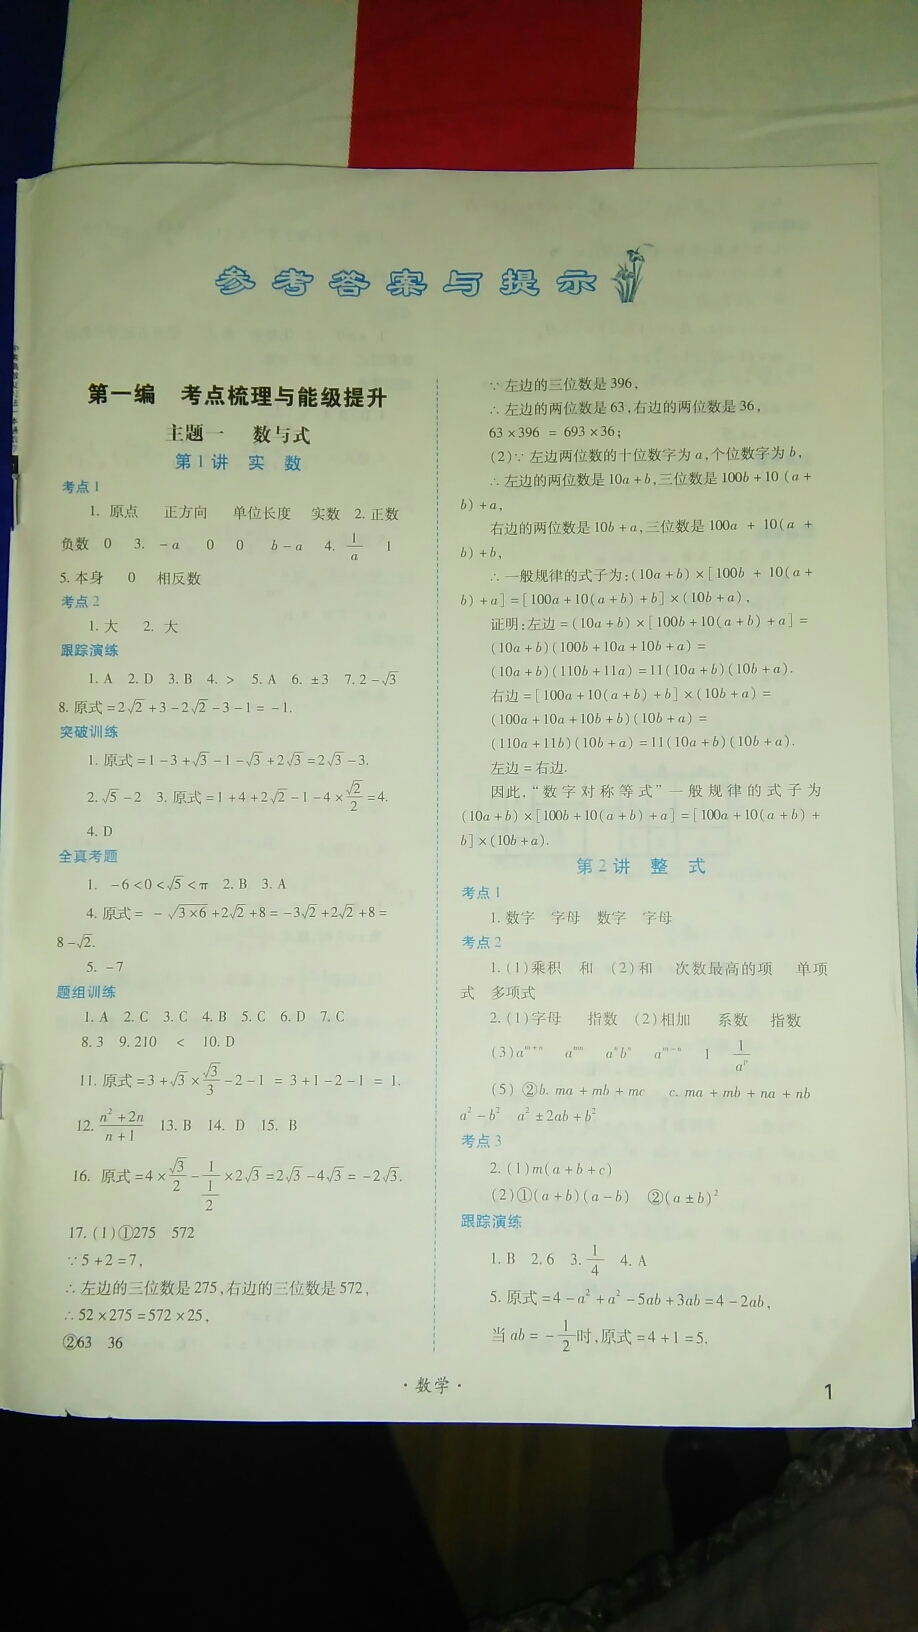 参考答案与提示
第一编 考点梳理与能级提升
主题一 数与式
第1讲 实 数
考点1
1. 原点 正方向 单位长度 实数 2. 正数
负数 0 3. -a 0 0 b-a 4. 1/a 1
5. 本身 0 相反数
考点2
1. 大 2. 大
跟踪演练
1. A 2. D 3. B 4. > 5. A 6. ±3 7. 2-√3
8. 原式=2√2+3-2√2-3-1=-1.
突破训练
1. 原式=1-3+√3-1-√3+2√3=2√3-3.
2. √5-2 3. 原式=1+4+2√2-1-4×√2/2=4.
4. D
全真考题
1. -6<0<√5<π 2. B 3. A
4. 原式= -√3×6+2√2+8=-3√2+2√2+8=
8-√2.
5. -7
题组训练
1. A 2. C 3. C 4. B 5. C 6. D 7. C
8. 3 9. 210 < 10. D
11. 原式=3+√3×√3/3-2-1=3+1-2-1=1.
12. n²+2n/n+1 13. B 14. D 15. B
16. 原式=4×√3/2-1/(1/2)×2√3=2√3-4√3=-2√3.
17. (1)①275 572
∵5+2=7,
∴左边的三位数是275,右边的三位数是572,
∴52×275=572×25,
②63 36
∵左边的三位数是396,
∴左边的两位数是63,右边的两位数是36,
63×396=693×36;
(2)∵左边两位数的十位数字为a,个位数字为b,
∴左边的两位数是10a+b,三位数是100b+10(a+
b)+a,
右边的两位数是10b+a,三位数是100a+10(a+
b)+b,
∴一般规律的式子为:(10a+b)×[100b+10(a+
b)+a]=[100a+10(a+b)+b]×(10b+a),
证明:左边=(10a+b)×[100b+10(a+b)+a]=
(10a+b)(100b+10a+10b+a)=
(10a+b)(110b+11a)=11(10a+b)(10b+a).
右边=[100a+10(a+b)+b]×(10b+a)=
(100a+10a+10b+b)(10b+a)=
(110a+11b)(10b+a)=11(10a+b)(10b+a).
左边=右边.
因此,“数字对称等式”一般规律的式子为
(10a+b)×[100b+10(a+b)+a]=[100a+10(a+b)+
b]×(10b+a).
第2讲 整 式
考点1
1. 数字 字母 数字 字母
考点2
1. (1)乘积 和 (2)和 次数最高的项 单项
式 多项式
2. (1)字母 指数 (2)相加 系数 指数
(3)aᵐ⁺ⁿ aᵐⁿ aⁿbⁿ aᵐ⁻ⁿ 1 1/aᵖ
(5)②b. ma+mb+mc c. ma+mb+na+nb
a²-b² a²±2ab+b²
考点3
2. (1)m(a+b+c)
(2)①(a+b)(a-b) ②(a±b)²
跟踪演练
1. B 2. 6 3. 1/4 4. A
5. 原式=4-a²+a²-5ab+3ab=4-2ab,
当ab=-1/2时,原式=4+1=5.
·数学·
1